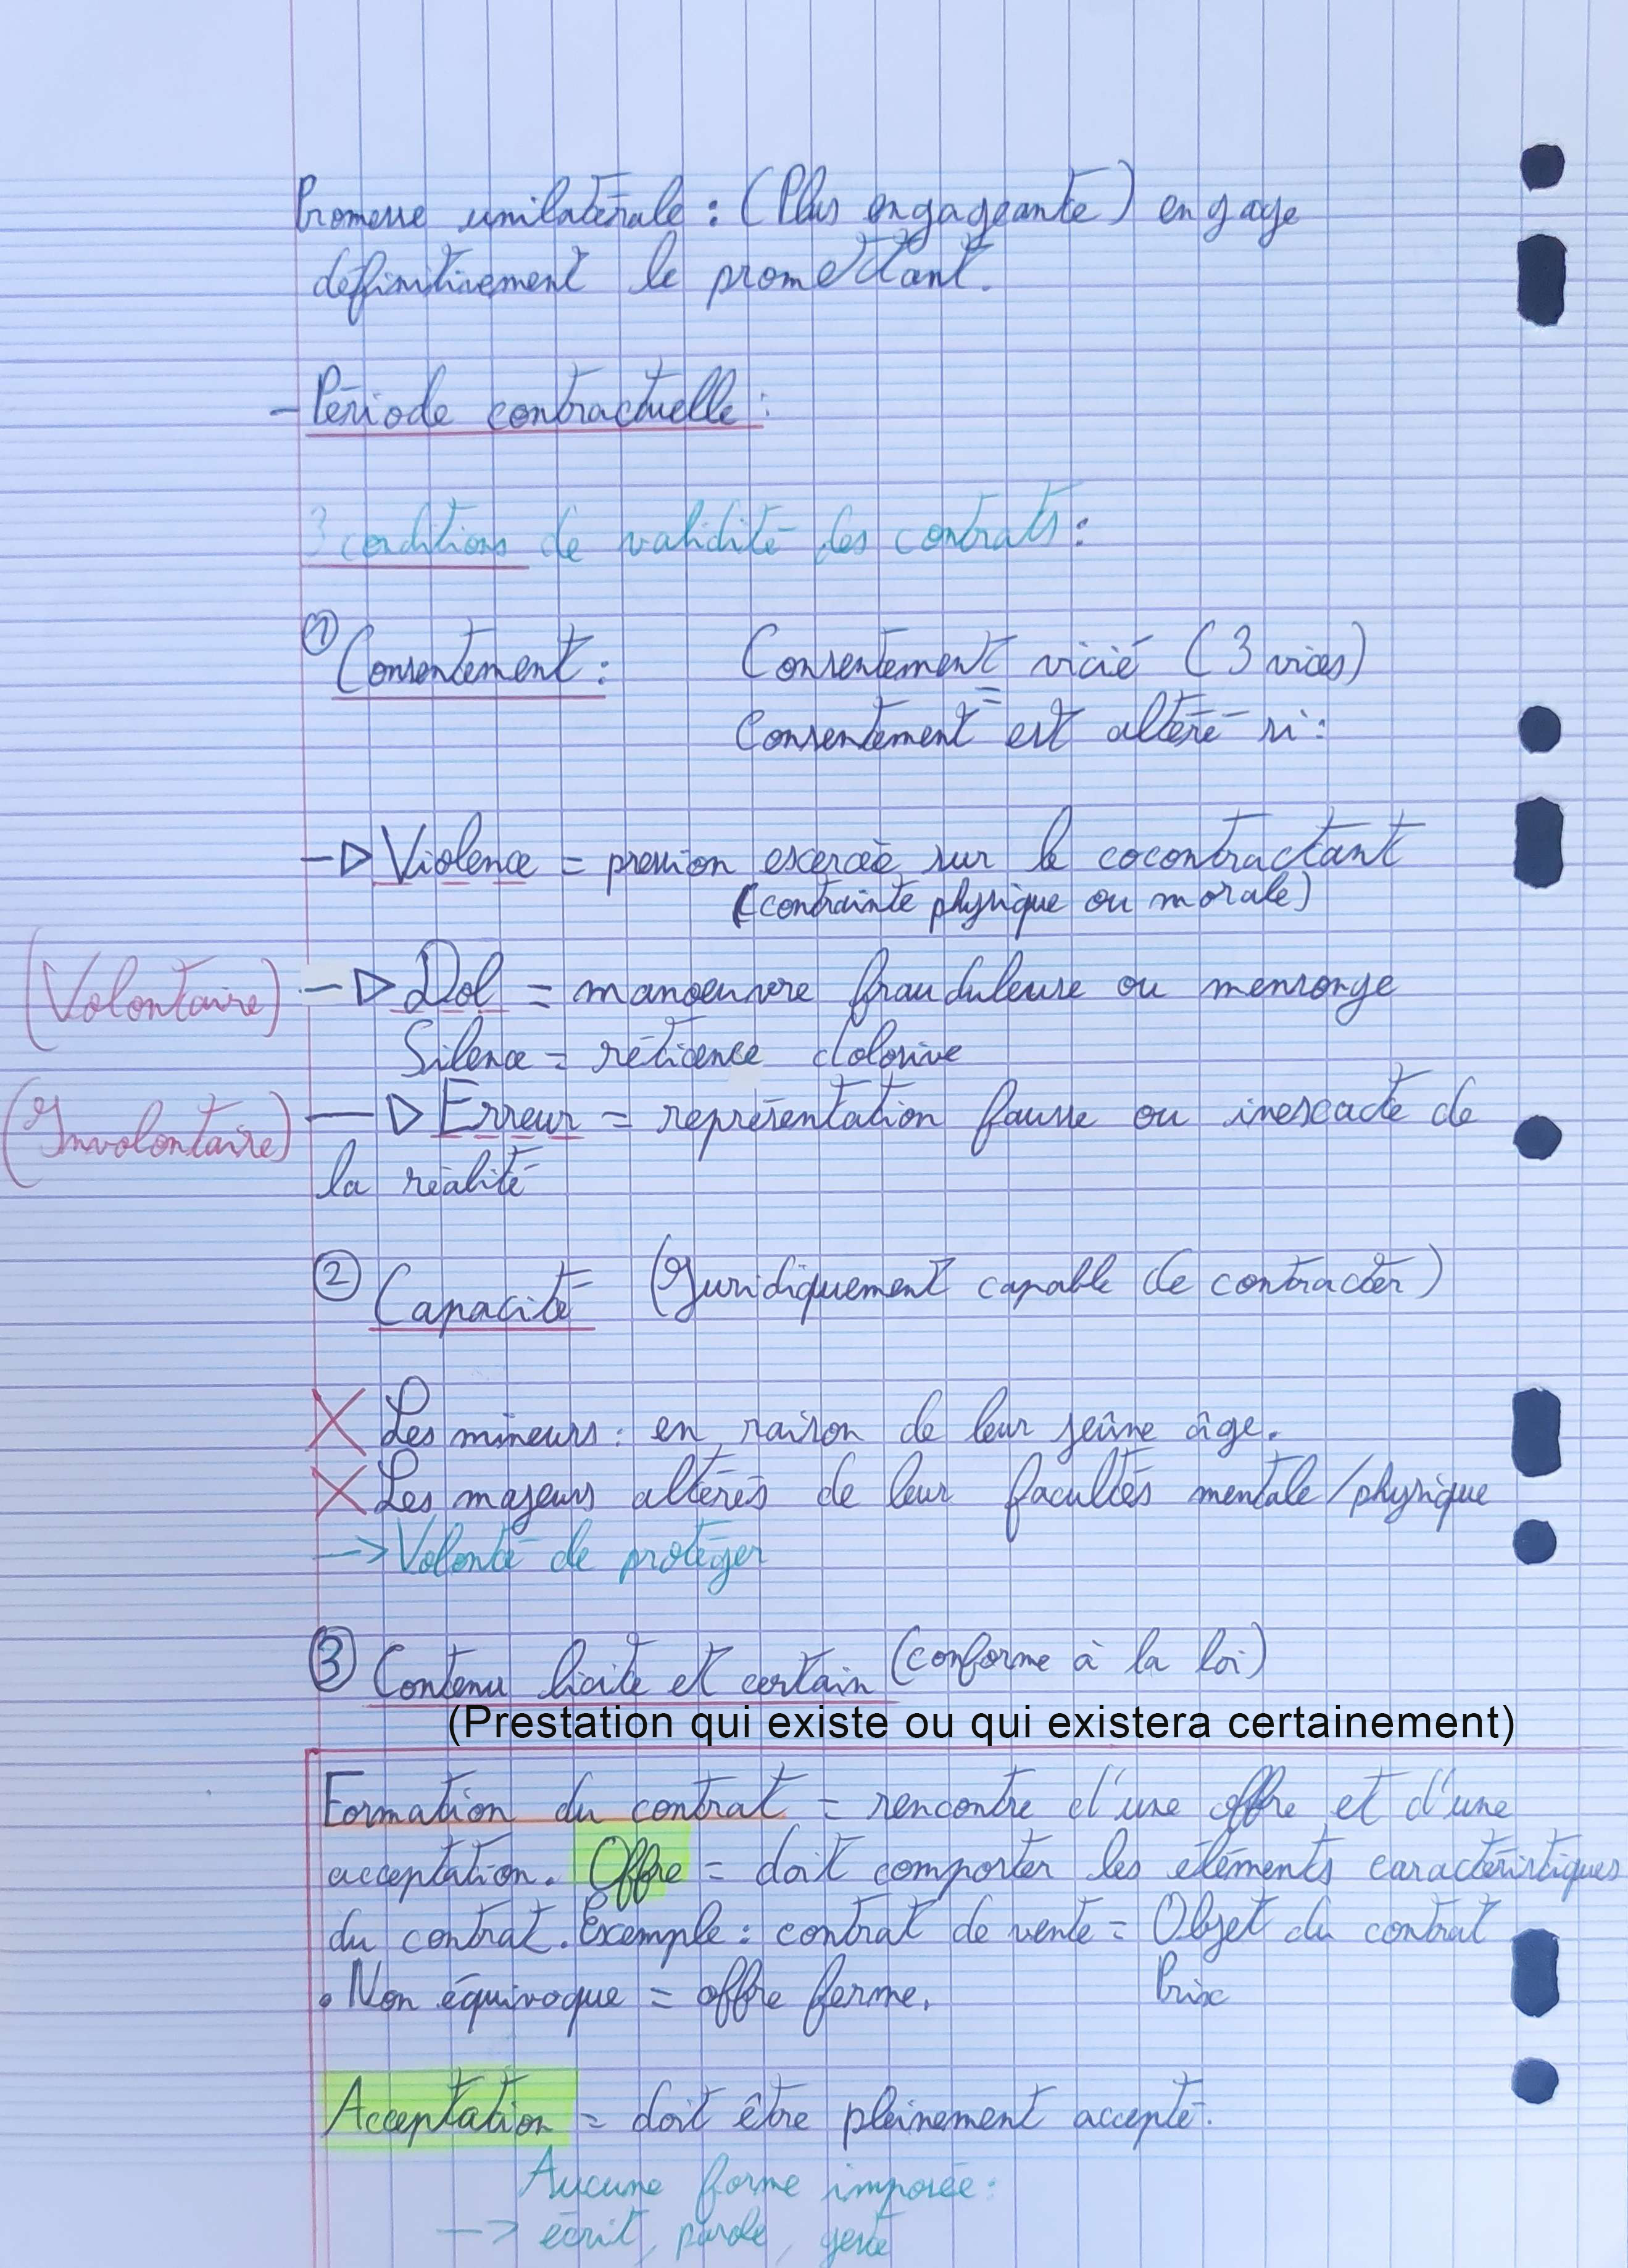 Promesse unilatérale : (Plus engageante) engage
définitivement le promettant.
- Période contractuelle :
3 conditions de validité des contrats :
① Consentement : Consentement vicié (3 vices)
=
Consentement est altéré si :
-▷ Violence = pression excercée sur le cocontractant
(contrainte physique ou morale)
(Volontaire) -▷ Dol = manoeuvre frauduleuse ou mensonge
Silence = réticence dolosive
(Involontaire) -▷ Erreur = représentation fausse ou inexacte de
la réalité
② Capacité (Juridiquement capable de contracter)
X Les mineurs : en raison de leur jeûne âge.
X Les majeurs altérés de leur facultés mentale/physique
-> Volonté de protéger
③ Contenu licite et certain (conforme à la loi)
(Prestation qui existe ou qui existera certainement)
Formation du contrat = rencontre d'une offre et d'une
acceptation. Offre = doit comporter les éléments caractéristiques
du contrat. Exemple : contrat de vente = Objet du contrat
• Non équivoque = offre ferme. Prix
Acceptation = doit être pleinement accepté.
Aucune forme imposée :
-> écrit, parole, geste